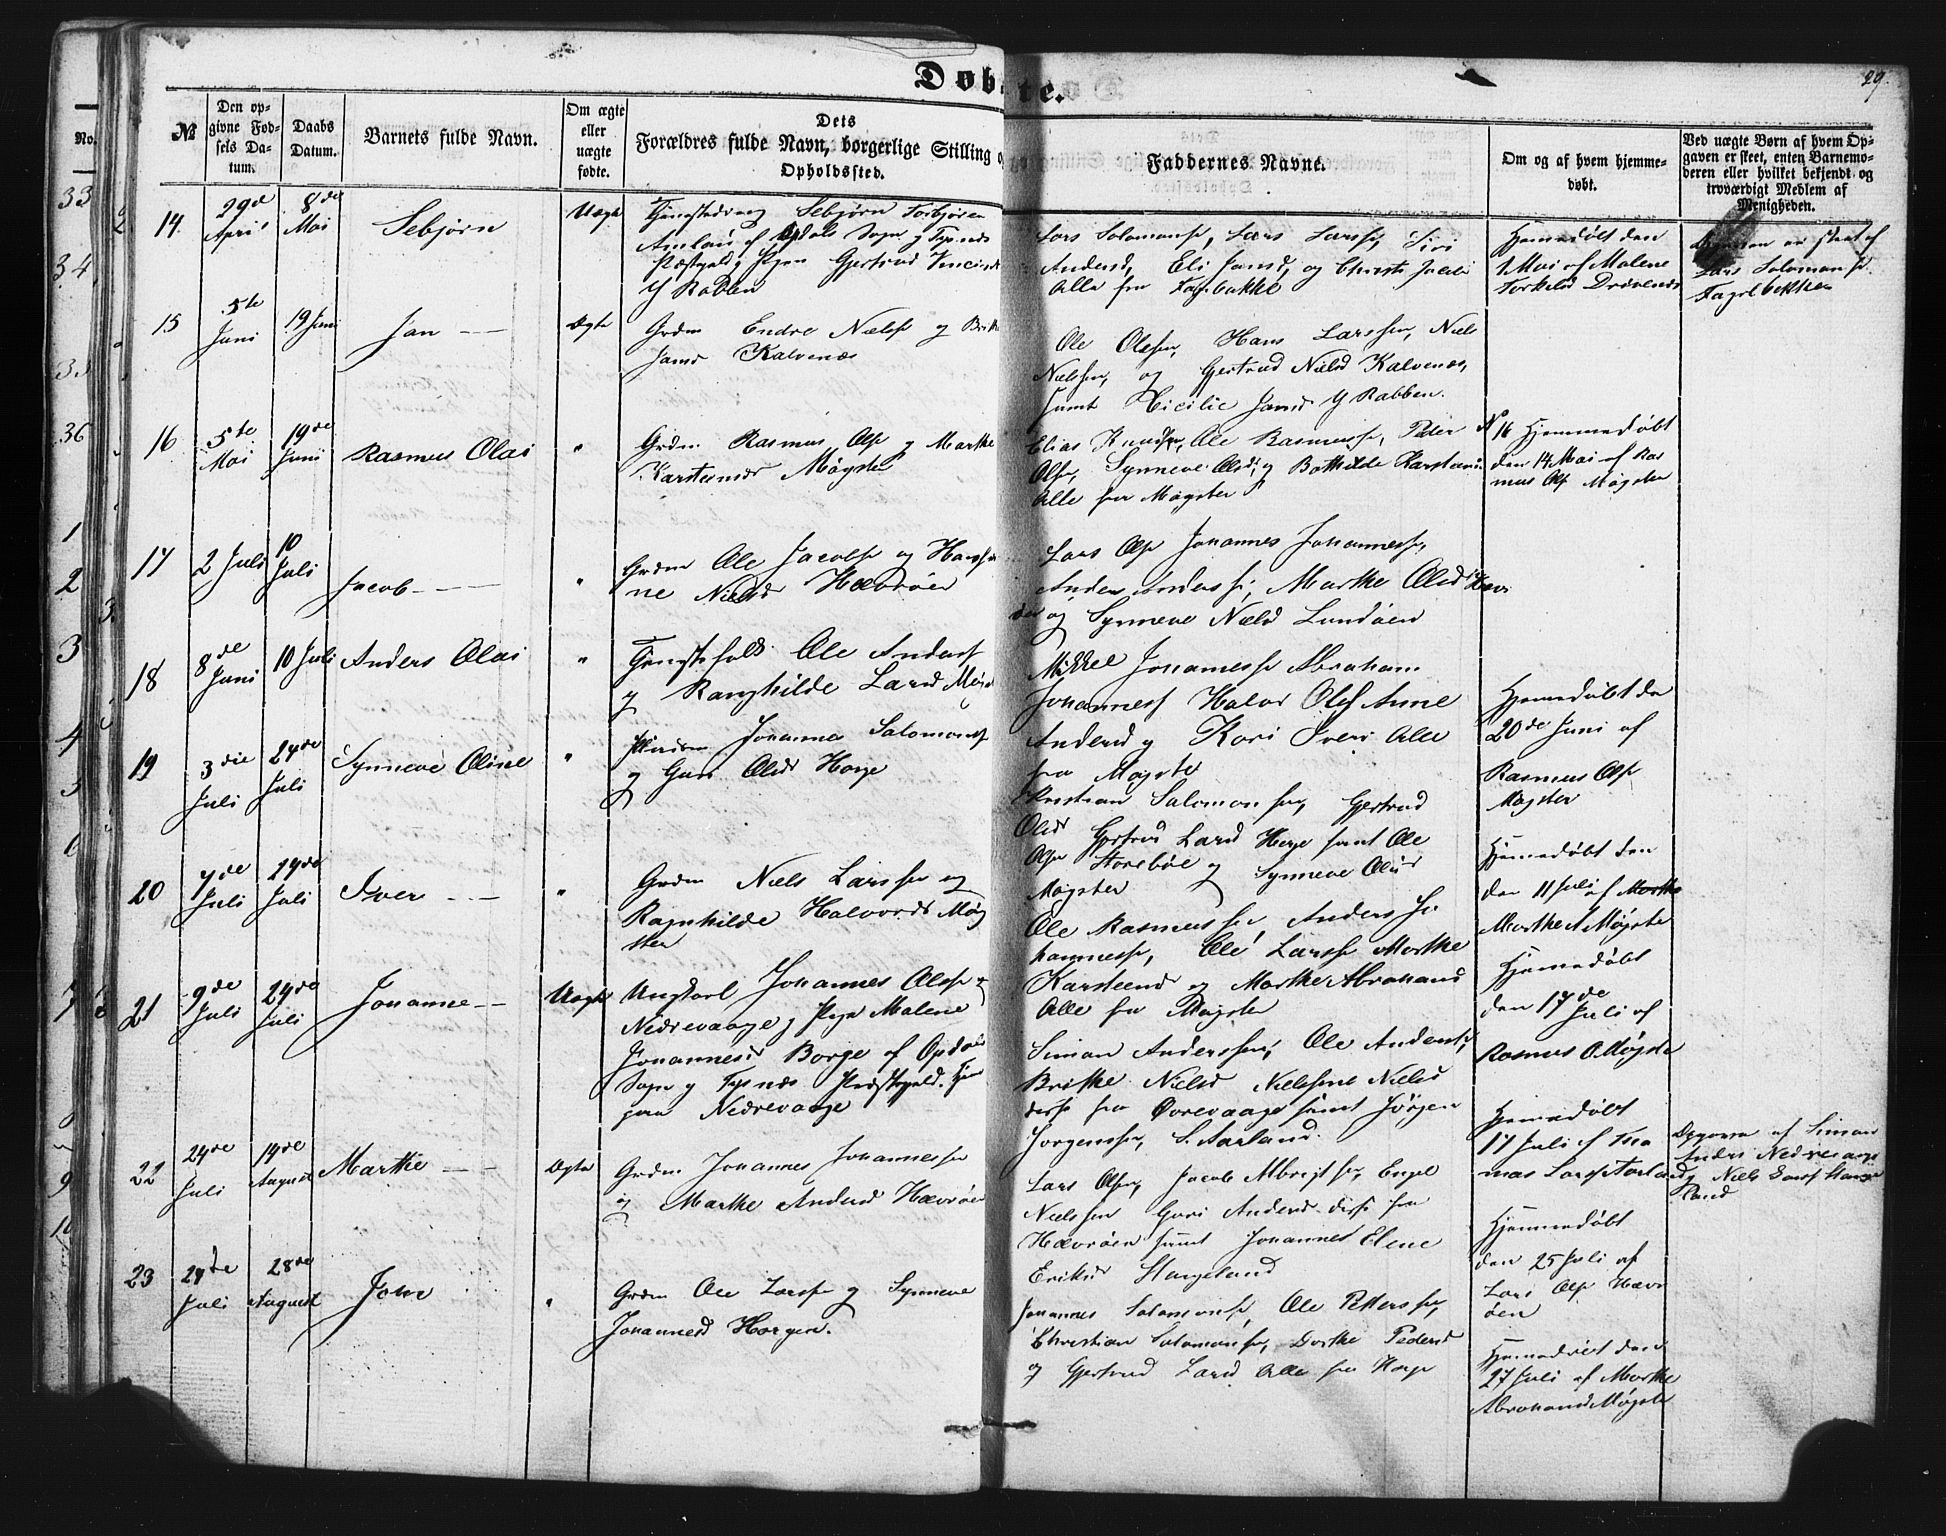 Døbte.
29.
No.
№
Den op-
givne Fød-
sels Da-
tum.
Daabs
Datum.
Barnets fulde Navn.
Om ægte
eller
uægte
fødte.
Dets
Forældres fulde Navn, borgerlige Stilling og
Opholdssted.
Faddernes Navne.
Om og af hvem hjemme-
døbt.
Ved uægte Børn af hvem Op-
gaven er skeet, enten Barnemo-
deren eller hvilket bekjendt og
troværdigt Medlem af
Menigheden.
14.
29de
April
8de
Mai
Sebjørn
Uægte
Sebjørn Torbjøren
Amland af Opdals Sogn og Tysnes
Præstegjeld og Pigen Gjertrud
Y Rabben
Lars Salomonse, Lars Larsse, Siri
Andersd, Eli Jansd, og Christi
Alle fra
Hjemmedøbt den
1 Mai af Malene
Torkelsd
er skeet af
Lars Salomonse
15
5te
Juni
19 Juni
Jan
Ægte
Grdm Endre Nielse og Brithe
Jansd Kalvenæs
Ole Olsen, Hans Larssen, Niels
Nielssen, og Gjertrud Nielsd Kalvenæs,
samt Cicilie Jansd Y Rabben.
16
5te
Mai
19de
Juni
Rasmus Olai
"
Grdm Rasmus Olse og Marthe
Karstensd Møgster
Elias Knudse, Ole Rasmusse, Peder
Olse, Synneve Olsd, og Bothilde Karstensd
Alle fra Møgster
№ 16 Hjemmedøbt
den 14 Mai af Ras
mus Olse Møgster
17
2 Juli
10
Juli
Jacob
"
Grdm Ole Jacobse og Hansi
ne Nielsd Hævrøen
Lars Olse Johannes Johannesse,
Anders Andersse, Marthe Olsd
og Synneve Nielsd Lundøen
18
8de
Juni
10 Juli
Anders Olai
"
Tjenestefolk Ole Anderse
og Ranghilde Larsd
Mikkel Johannesse Abraham
Johannesse Halvor Olse Anne
Andersd og Kari Iversd Alle
fra Møgster
Hjemmedøbt den
20de Juni af
Rasmus Olse
Møgster
19
3die
Juli
24de
Juli
Synneve Oline
"
Johannes Salomonse
og Guri Olsd Horge
Christian Salomonsen, Gjertrud
Olsd Gjertrud Larsd Horge samt Ole
Olse Storebøe og Synneve Olsd
Møgster
Hjemmedøbt den
den 11 Juli af Marthe
Marthe A Møgster
20
7de
Juli
24de
Juli
Iver
"
Grdm Niels Larssen og
Ragnhilde Halvorsd Møg
ster
Ole Rasmussen, Anders Jo
hannesse, Ole Larsse Marthe
Karstensd og Marthe Abrahamsd
Alle fra Møgster
Hjemmedøbt
den 17de
Juli af
Rasmus O. Møgster
21
9de
Juli
24de
Juli
Johanne
Uægte
Ungkarl Johannes Olsse
Nedrevaage og Pige Malene
Johannesd Borge af Opdals
Sogn og Tysnæs Præstegjeld.
Nedrevaage
Simon Anderssen, Ole Anderse,
Brithe Nielsd Nielsine Nielsd
disse fra Øvrevaage samt Jørgen
Jørgenssen, S. Aarland.
Hjemmedøbt
17 Juli af Tho
mas Larsse
Opgaven af Simon
Anders Nedrevaage
og Niels
land
22
24de
Juli
14de
August
Marthe
Ægte
Grdm Johannes Johannessen
og Marthe Andersd Hævrøen
Lars Olsen, Jacob Albrigtsen, Engel
Nielssen Guri Andersd disse fra
Hævrøen samt Johannes Elene
Eriksd Stangeland
Hjemmedøbt
den 25 Juli af
Lars Olse Hævr
øen
23
24de
Juli
28de
August
John
"
Grdm Ole Larsse og Synneve
Johannesd Horgen.
Johannes Salomonse, Ole Petterssen,
Christian Salomonsen, Dorthe Pedersd
og Gjertrud Larsd Alle fra Horge
Hjemmedøbt den
27 Juli af Marthe
Abrahamsd Møgster